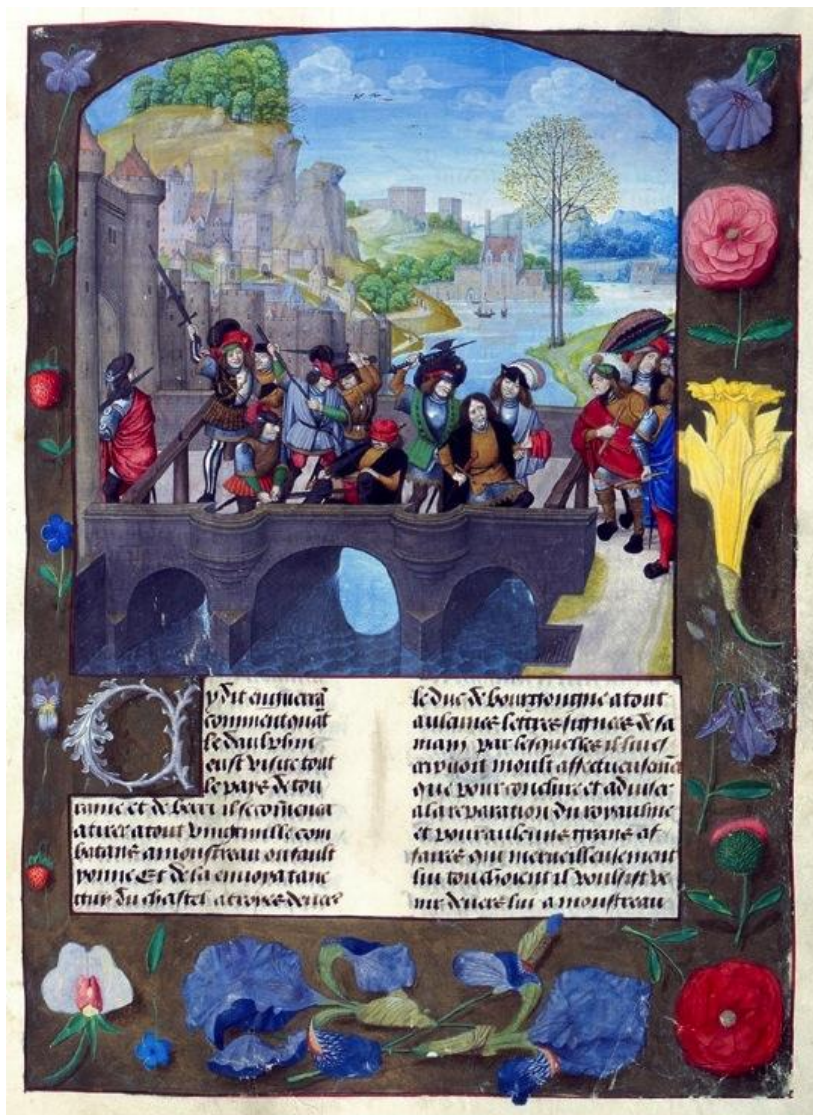 Cy dit enguerrã
comment quãt
le daulphin
eust visite tout
le pays de tou
raine et de berri il se comẽca
a tirer atout vingt mille com
batans a moustreau ou fault
yonne Et de la enuoya tane
guy du chastel a troyes deuers
le duc de bourgongne atout
aulcunes lettres signees de sa
main par lesquelles il lui es
cripuoit moult affectueusemẽt
que pour conclure et aduiser
a la reparation du royaulme
et pour aulcuns grans af
faires qui merueilleusement
lui touchoient il voulsist ve
nir deuers lui a moustreau